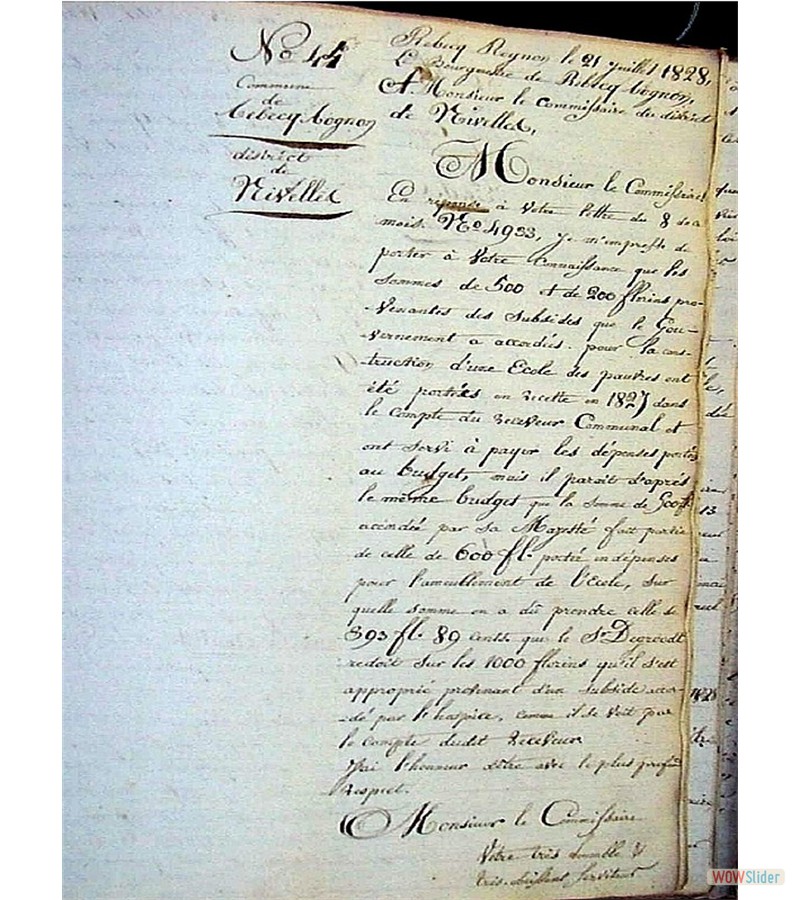 No 44
Commune
de
Rebecq Rognon
district
de
Nivelles
Rebecq Rognon le 21 juillet 1828,
Le Bourgmestre de Rebecq Rognon,
A Monsieur le Commissaire du district
de Nivelles,
Monsieur le Commissaire!
En reponse à Votre lettre du 8 de ce
mois. No 4933, je m'empresse de
porter à Votre Connaissance que les
sommes de 500 et de 200 florins pro-
-venantes des Subsides que le Gou-
-vernement a accordés pour la cons-
-truction d'une Ecole des pauvres ont
été portées en recette en 1827 dans
le Compte du Receveur Communal et
ont servi à payer les dépenses portées
au budget, mais il parait d'après
le même budget que la somme de
par Sa Majesté fait partie
de celle de 600 fl. portée en dépenses
pour l'ameublement de l'Ecole, sur
quelle somme on a dû prendre celle de
393 fl. 89 cents que le Sr
redoit sur les 1000 florins qu'il s'est
approprié provenant d'un subside accor-
-dé par l'hospice, comme il se voit par
le Compte dudit Receveur
J'ai l'honneur d'être avec le plus profond
respect.
Monsieur le Commissaire
Votre très humble &
très obéissant Serviteur
WOWSlider